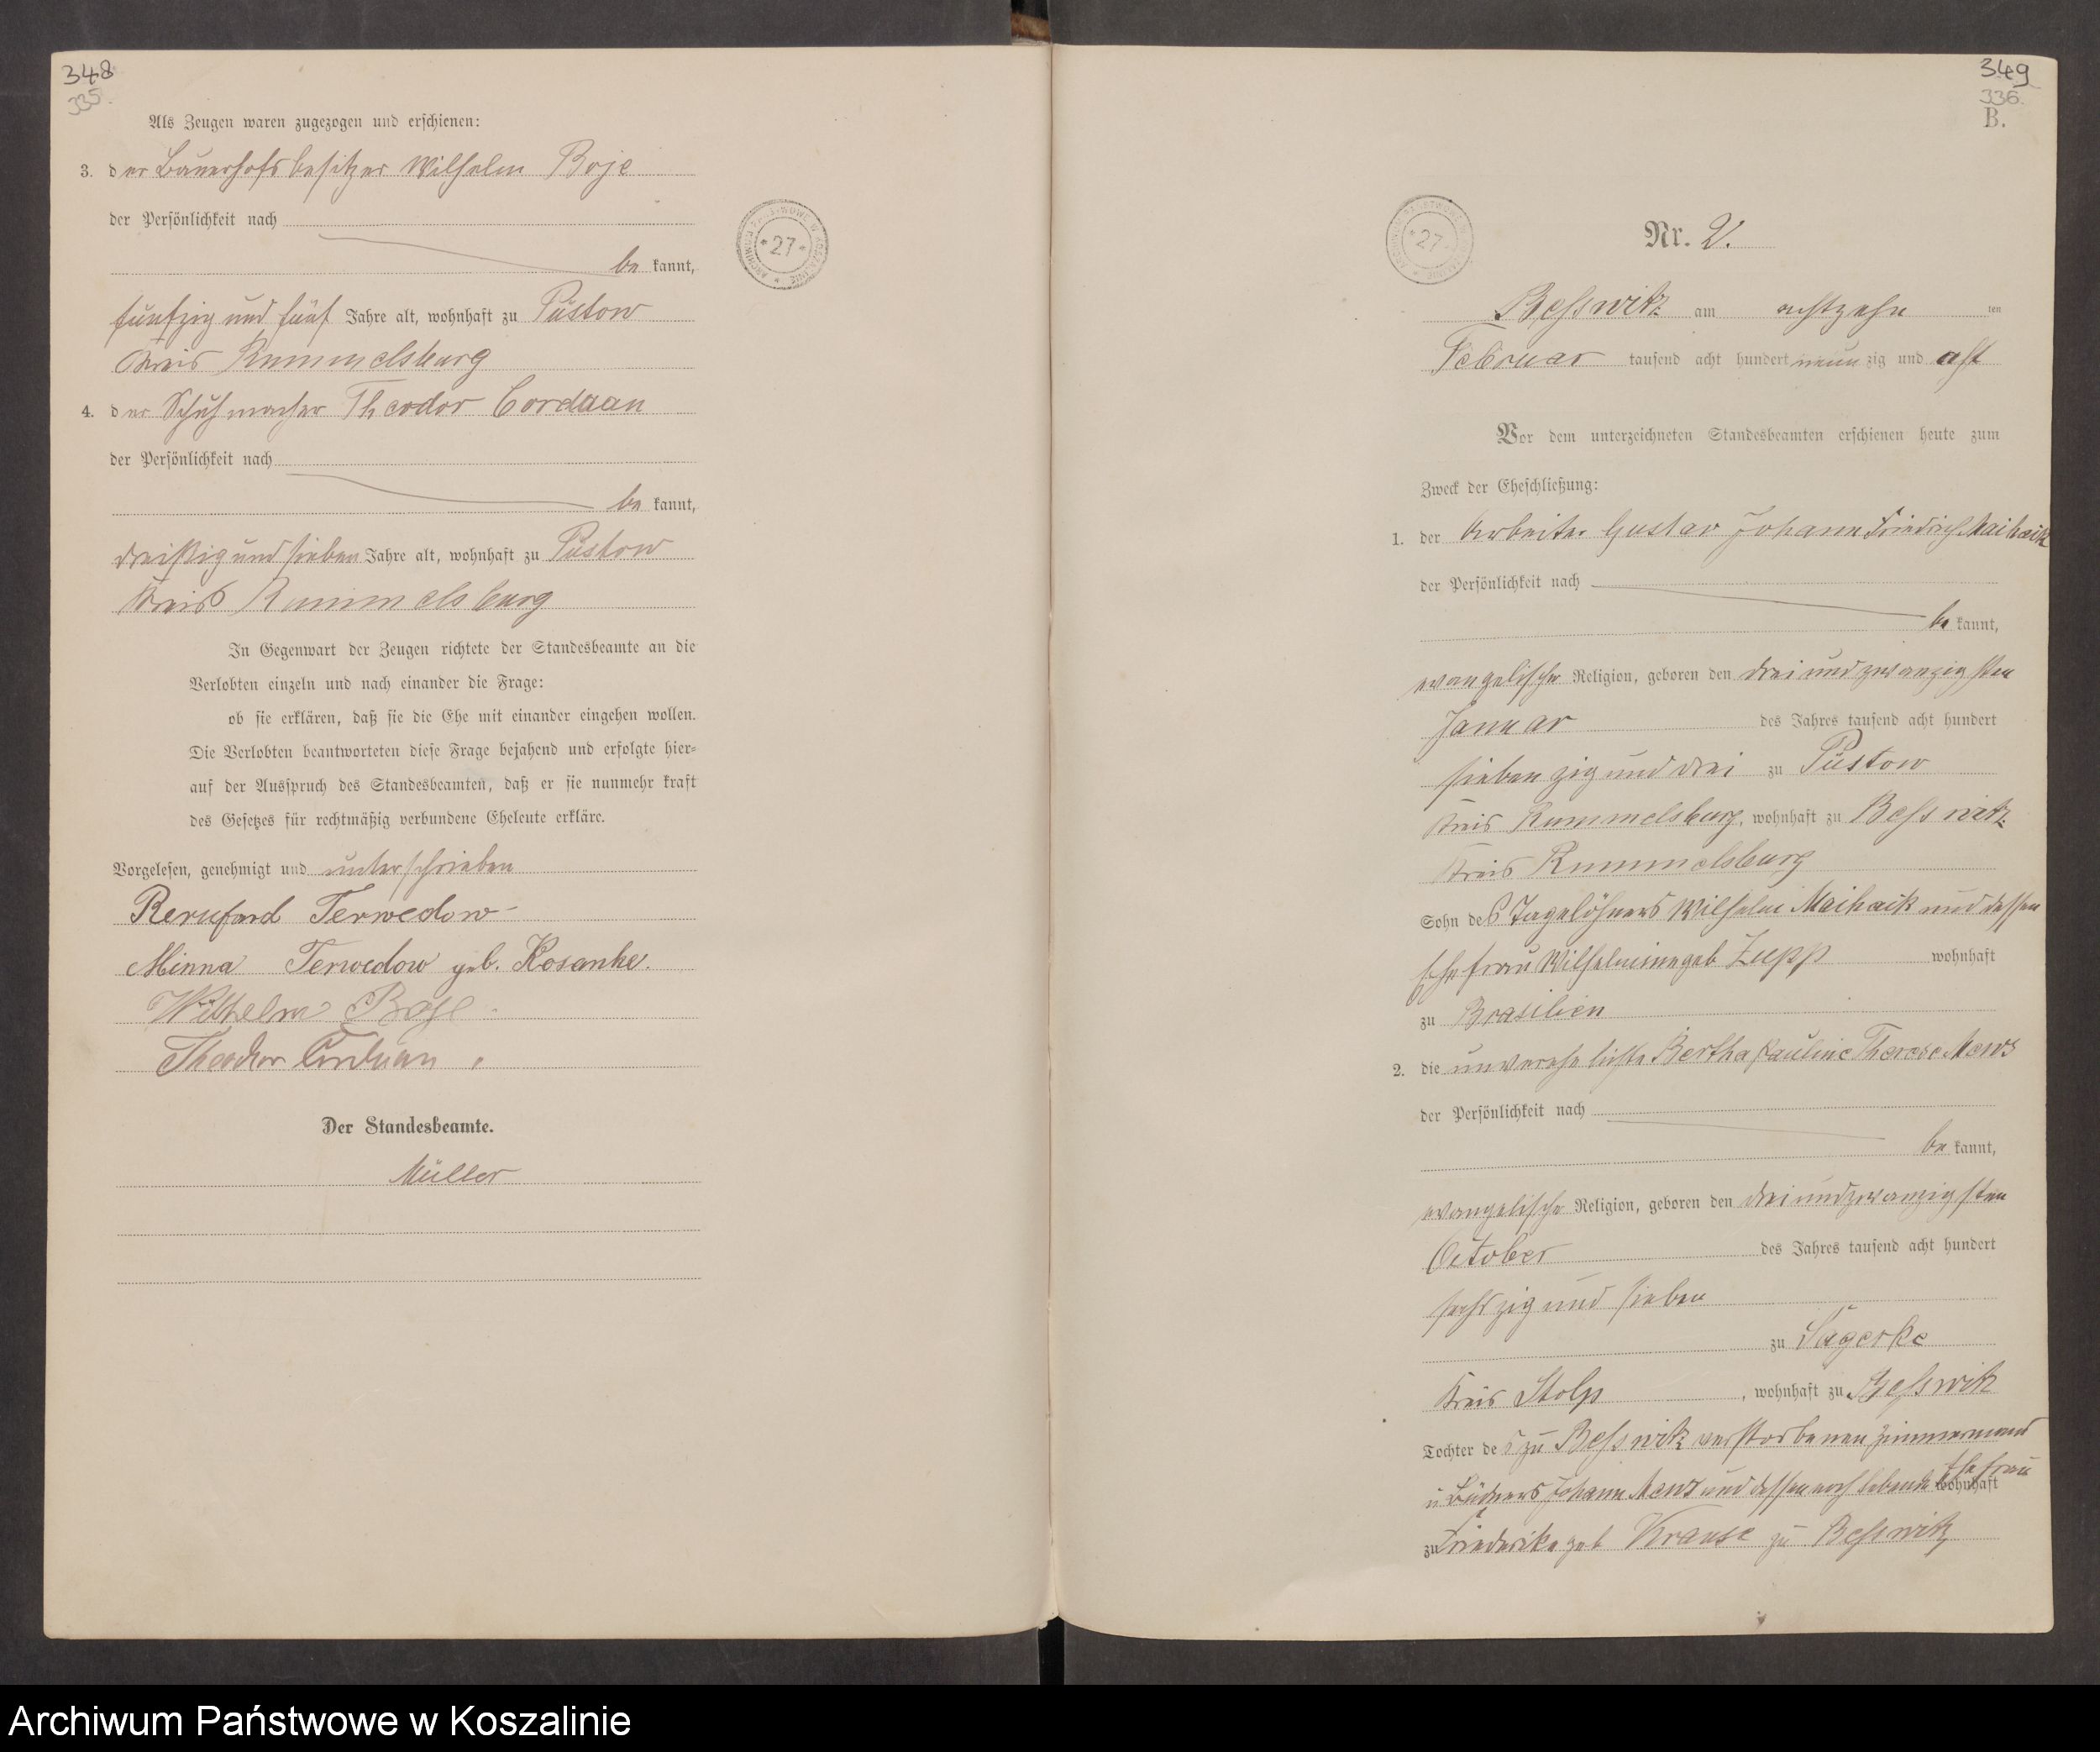 348
335.
Als Zeugen waren zugezogen und erschienen:
3. der Bauerhofsbesitzer Wilhelm Boje
der Persönlichkeit nach
be kannt,
fünfzig und fünf Jahre alt, wohnhaft zu Püstow
Kreis Rummelsburg
4. der Schuhmacher Theodor Cordaan
der Persönlichkeit nach
be kannt,
dreißig und sieben Jahre alt, wohnhaft zu Püstow
Kreis Rummelsburg
In Gegenwart der Zeugen richtete der Standesbeamte an die
Verlobten einzeln und nach einander die Frage:
ob sie erklären, daß sie die Ehe mit einander eingehen wollen.
Die Verlobten beantworteten diese Frage bejahend und erfolgte hier-
auf der Ausspruch des Standesbeamten, daß er sie nunmehr kraft
des Gesetzes für rechtmäßig verbundene Eheleute erkläre.
Vorgelesen, genehmigt und unterschrieben
Bernhard Terwedow
Minna Terwedow geb. Kosanke.
Wilhelm Boje
Theodor Corduan
Der Standesbeamte.
Müller
* 27 *
349
336.
B.
27
Nr. 2.
Besswitz am achtzehn ten
Februar tausend acht hundert neun zig und acht
Vor dem unterzeichneten Standesbeamten erschienen heute zum
Zweck der Eheschließung:
1. der Arbeiter Gustav Johann Friedrich Maihaik
der Persönlichkeit nach
be kannt,
evangelischer Religion, geboren den drei und zwanzigsten
Januar des Jahres tausend acht hundert
sieben zig und drei zu Püstow
Kreis Rummelsburg, wohnhaft zu Besswitz
Kreis Rummelsburg
Sohn des Tagelöhners Wilhelm Maihaik und dessen
Ehefrau Wilhelmine geb Zupp wohnhaft
zu Brasilien
2. die unverehelichte Bertha Pauline Therese Mews
der Persönlichkeit nach
be kannt,
evangelischer Religion, geboren den drei und zwanzigsten
October des Jahres tausend acht hundert
sechszig und sieben
zu Sagerke
Kreis Stolp, wohnhaft zu Besswitz
Tochter des zu Besswitz verstorbenen Zimmermann
u Büdners Johann Mews und dessen noch lebende Ehefrau wohnhaft
zu Friederike geb Krause zu Besswitz
Archiwum Państwowe w Koszalinie